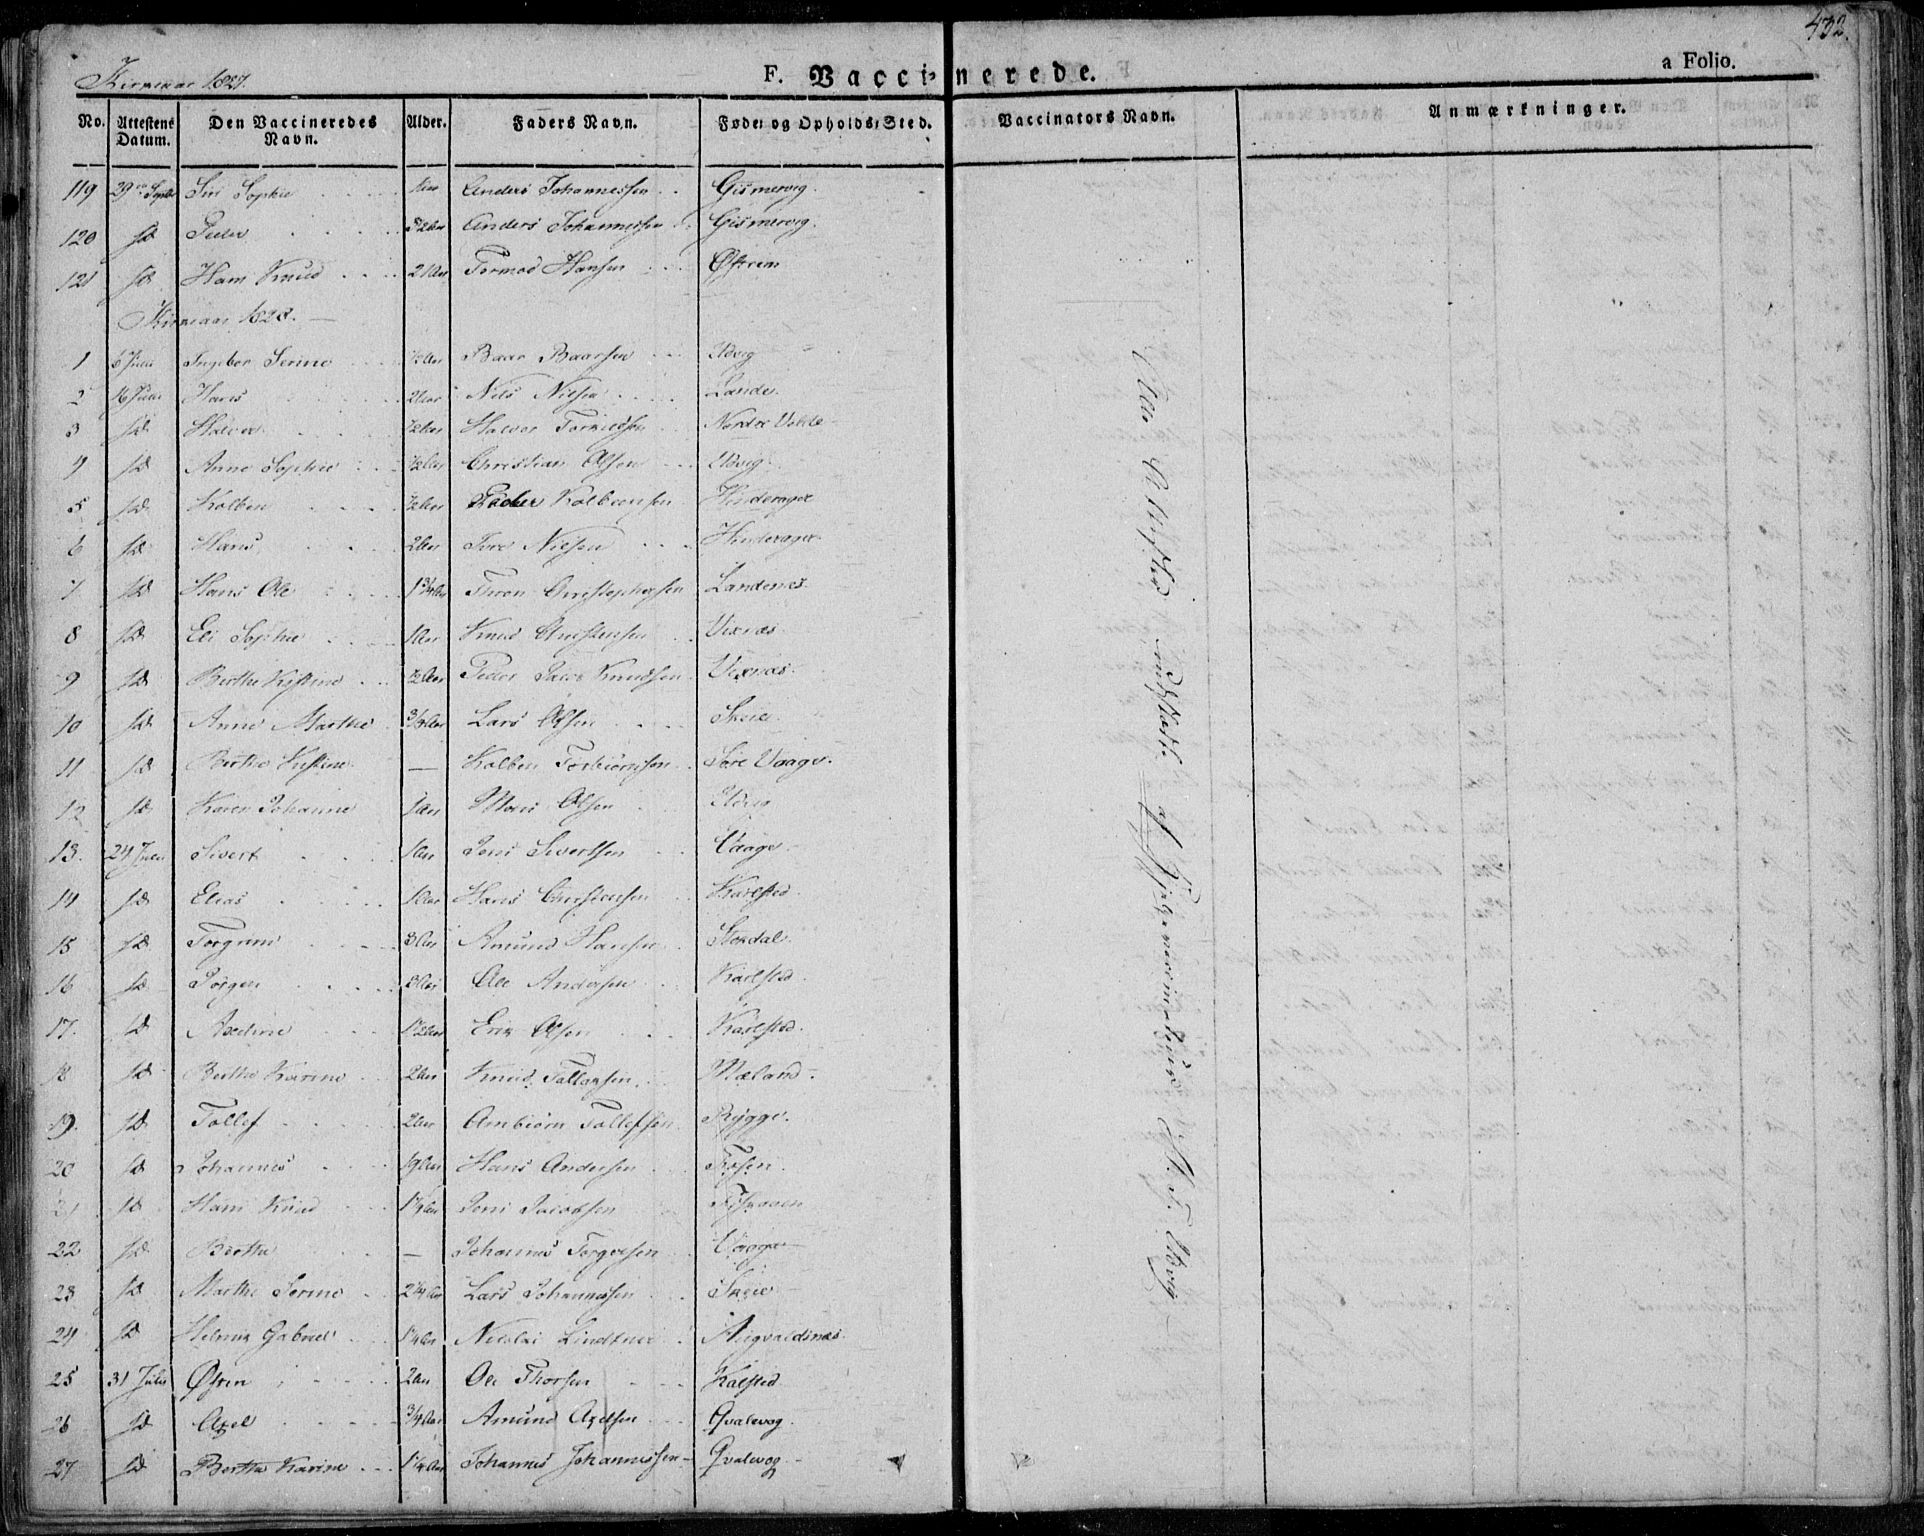 432.
Kirkeaar 1827.
F. Vaccinerede.
a Folio.
No. Attestens Datum. Den Vaccineredes Navn. Alder. Faders Navn. Føde- og Opholds-Sted. Vaccinators Navn. Anmærkninger.
119 29 Septbr Siri Sophie 1 Aar Anders Johannessen Gismervig.
120 id Peder Anders Johannessen Gismervig.
121 id Hans Knud 2 Aar Tormod Hansen Østrem
Kirkeaar 1828.
1 Ingebor Serine ½ Aar Baar Baarsen Udvig
2 Hans 2 Aar Nils Nilsen Lande.
3 id Halvor ½ Aar Halvor Nordre
4 id Anne Sophie ½ Aar Christian Olsen Udvig.
5 id Kolben ½ Aar Peder Kolbeensen Hinderager
6 id Hans 2 Aar Tore Nilsen Hinderager
7 id Hans Ole 1¾ Aar Thron Christophersen Landenes.
8 id Eli Sophie 1 Aar Knud Christensen Vixnæs
9 id Berthe Kistine ½ Aar Peder Jacob Knudsen Vixnæs.
10 id Anne Marthe ¾ Aar Lars Olsen Skeie.
11 id Berthe Kistine — Kolben Torbiørnsen Søre Vaage.
12 id Karen Johanne 1 Aar Mons Olsen Udvig
13. 24 Juli Sivert 1 Aar Jens Sivertsen Vaage
14 id Elias 1 Aar Hans Christensen Karlsted
15 id Torgrim 3 Aar Amund Hansen Stordal.
16 id Jørgen Ole Andersen Karlsted.
17. id Axeline 1½ Aar Erik Olsen Karlsted.
18 id Berthe Karine 2 Aar Knud Tollagsen Mæland.
19. id Tollef 2 Aar Ambiørn Tollefsen Rygge.
20 id Johannes Hans Andersen Fosen.
21 id Hans Knud Jens Jacobsen
22 id Berthe — Johannes Torgersen Vaage
23 id Marthe Serine 2¼ Aar Lars Johannessen Skeie
24 id Helmik Gabriel 1¼ Aar Nicolai Lindtner Augvaldsnæs.
25 31 Julii Østen 2 Aar Ole Thorsen Kalsted
26 id Axel ¾ Aar Amund Axelsen Qvalevog.
27 id Berthe Karine 1¼ Aar Johannes Johannessen Qvalevog
af Hjelpevaccinateur Udvig